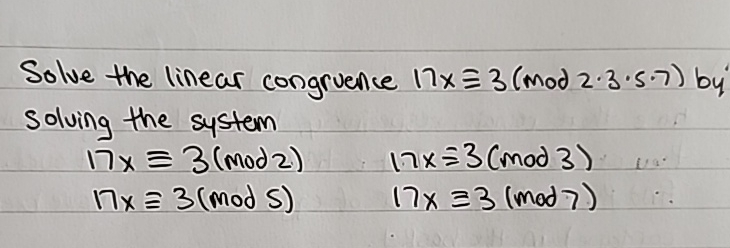 Solve the linear congruence 17x ≡ 3 (mod 2·3·5·7) by
solving the system
17x ≡ 3 (mod 2) 17x ≡ 3 (mod 3)
17x ≡ 3 (mod 5) 17x ≡ 3 (mod 7)